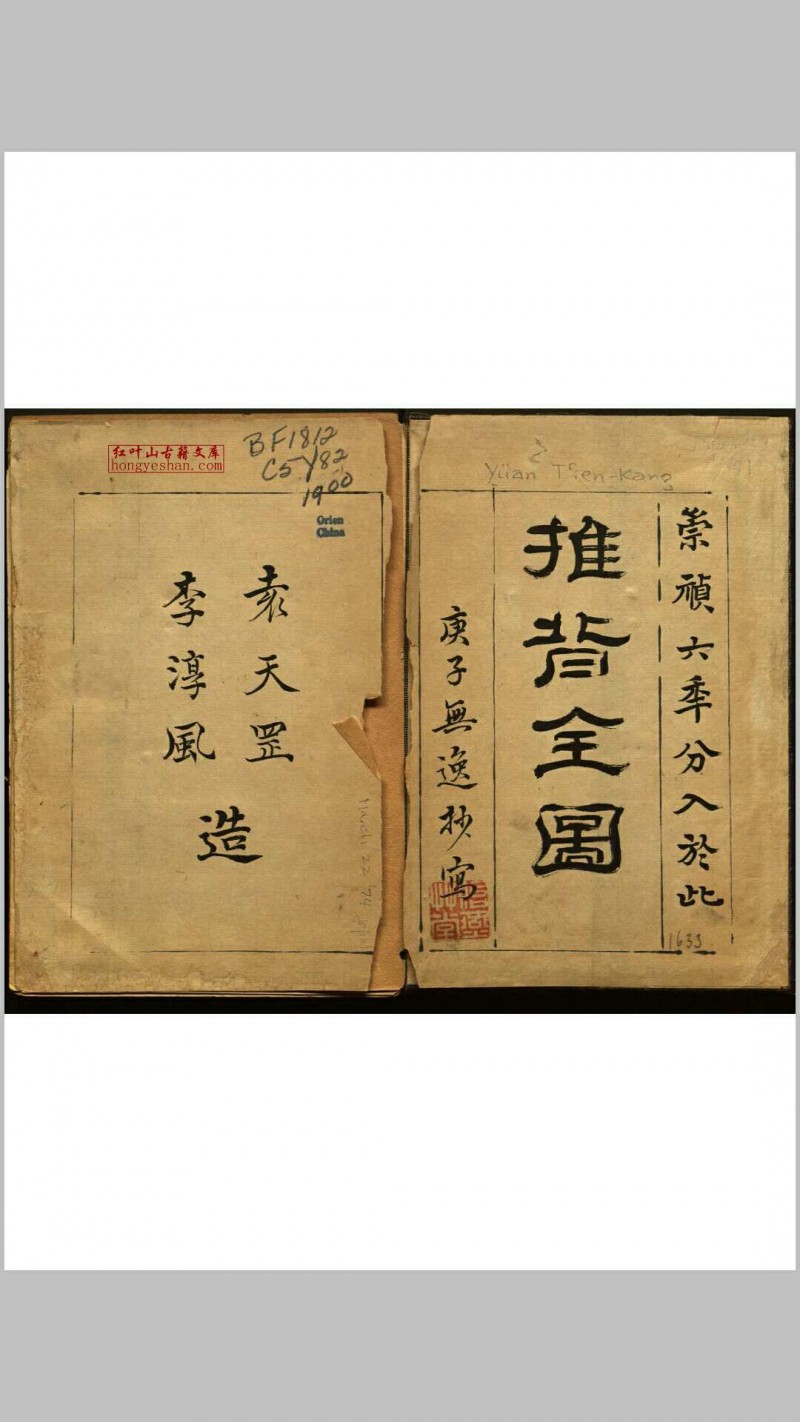 崇禎六年分入於此
推背全圖
庚子無逸抄寫
Yüan T'ien-kang
1633
袁天罡
李淳風
造
BF1812
C5Y82
1900
Orien
China
红叶山古籍文库
hongyeshan.com